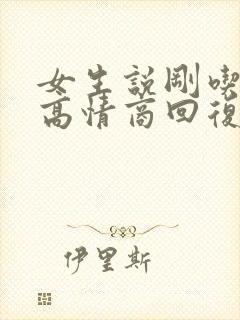 女生説剛喫
高情商回復
伊里斯